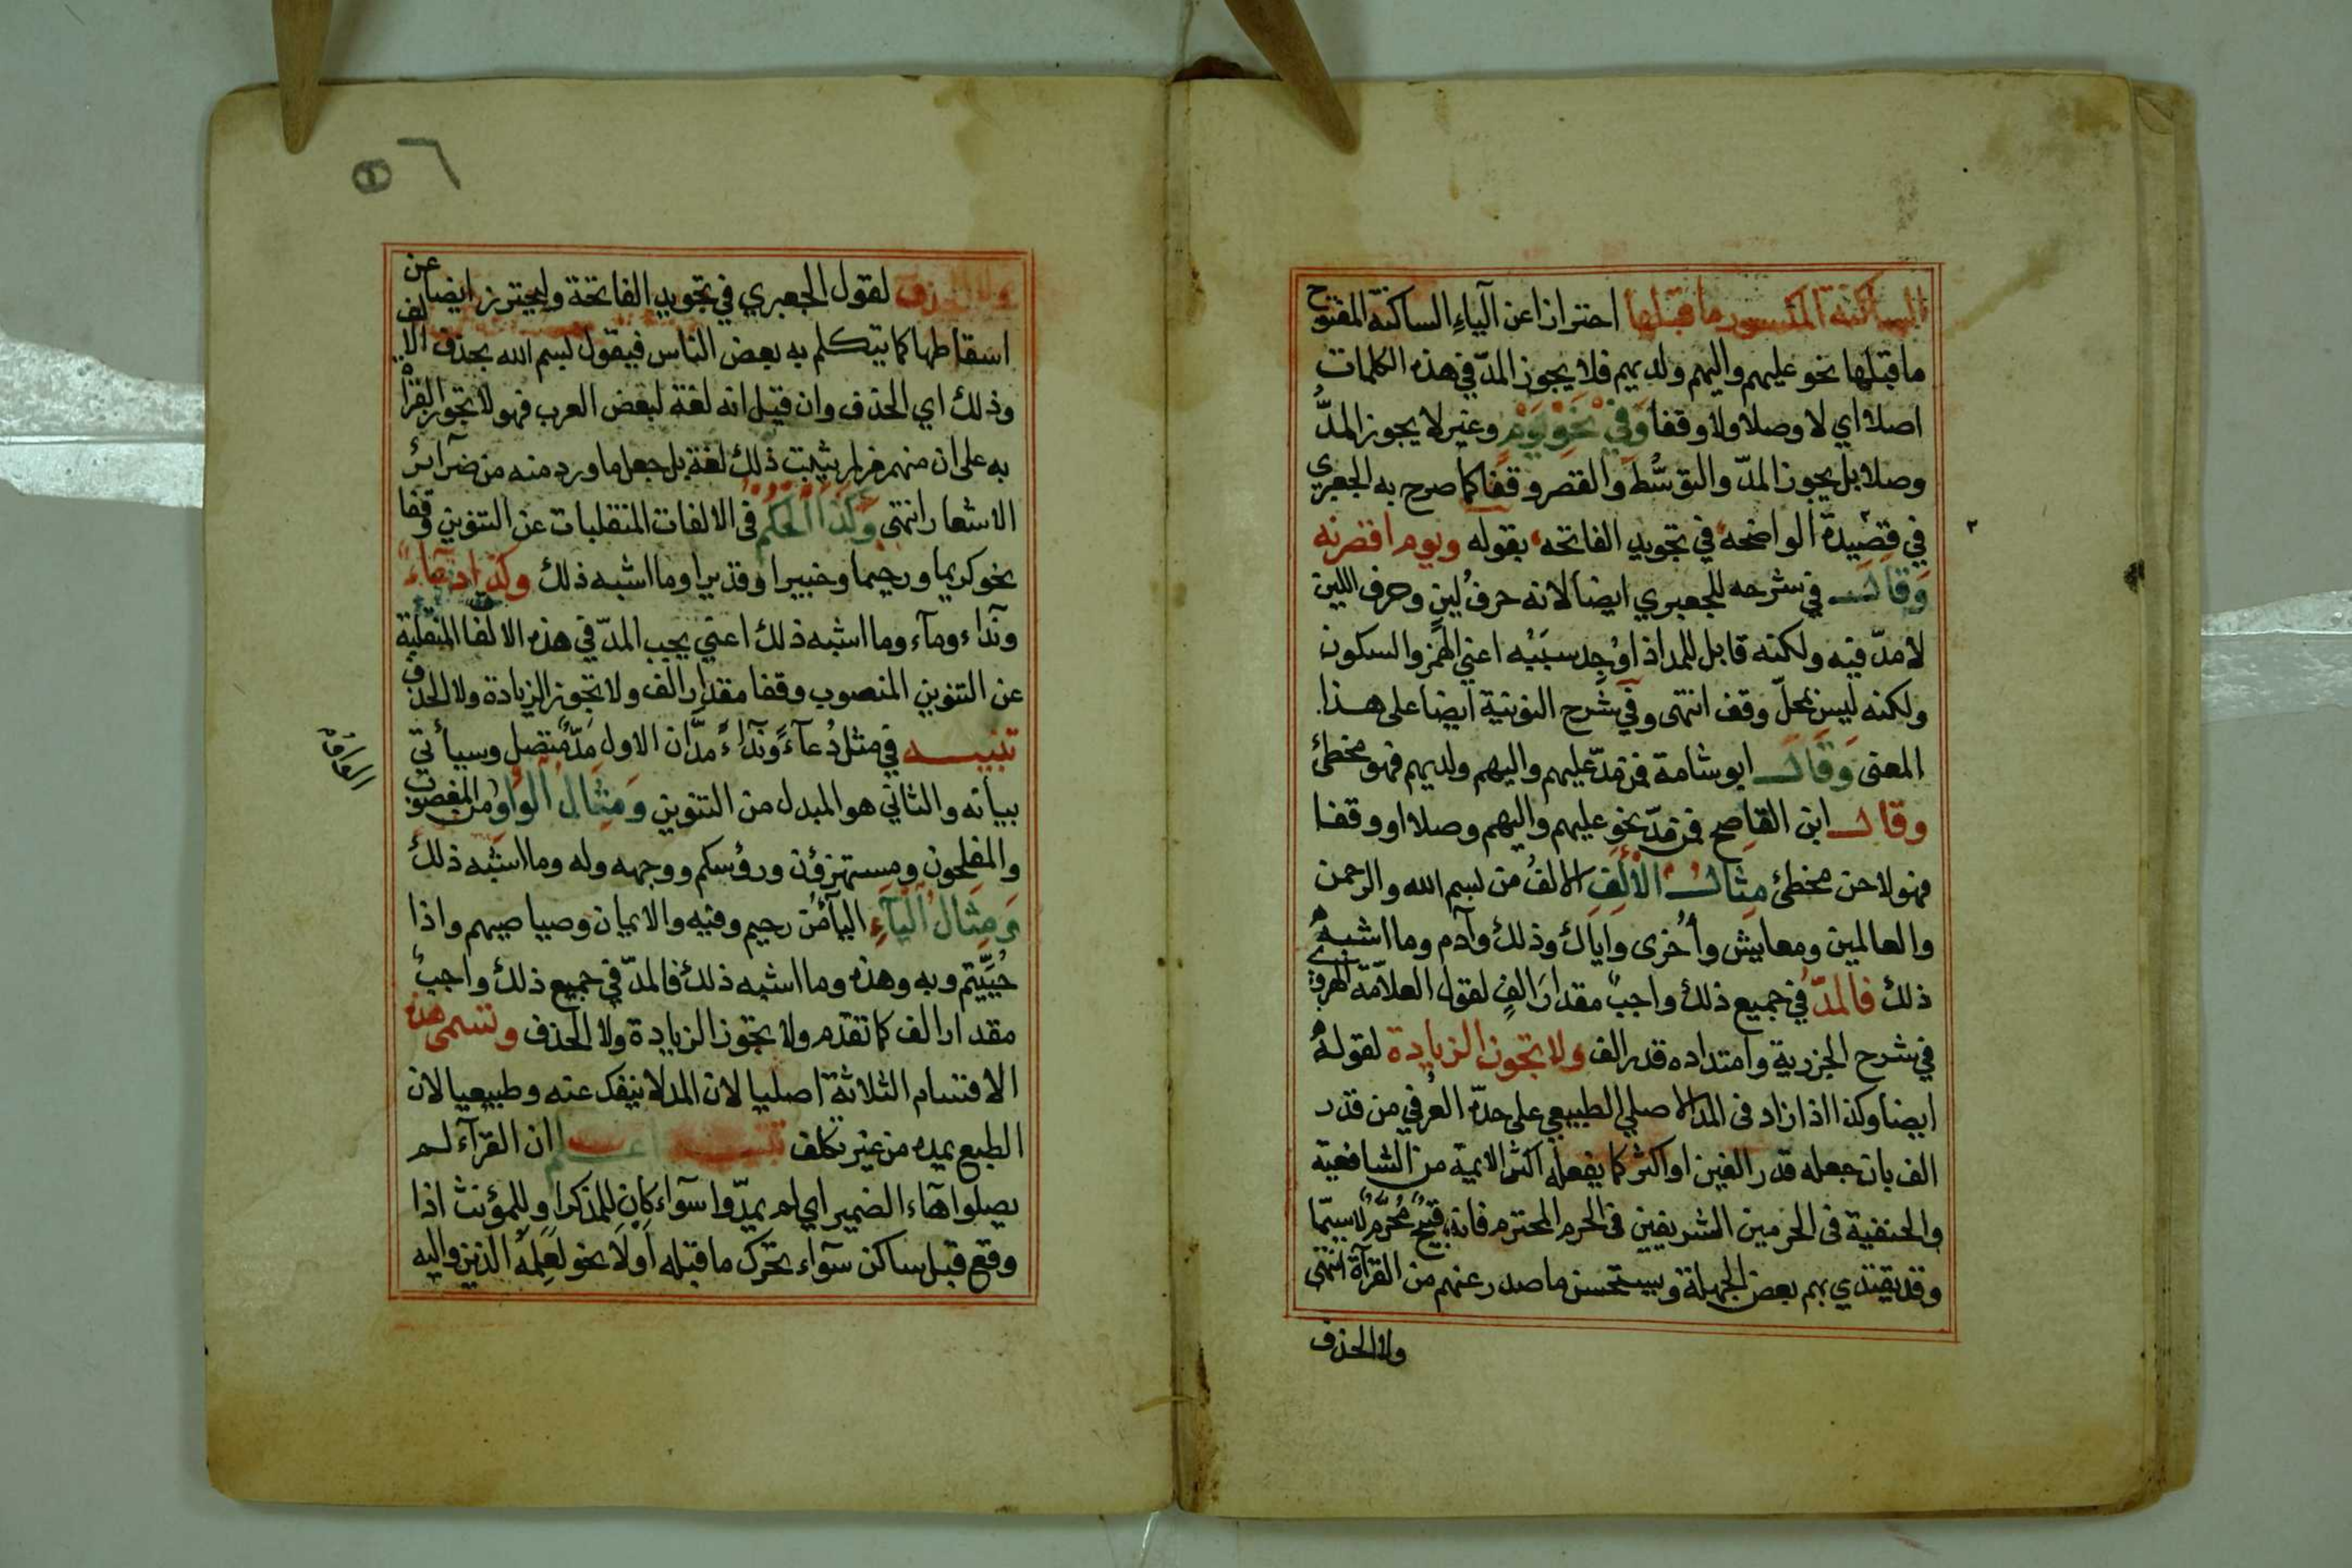 الساكنة المكسور ما قبلها احترازا عن الياء الساكنة المفتوح
ما قبلها نحو عليهم واليهم ولديهم فلا يجوز المدّ في هذه الكلمات
اصلا اي لا وصلا ولا وقفا وَفي نَحْوِ يَوْمٍ وغير لا يجوز المدُّ
وصلا بل يجوز المدّ والتوسُّطَ والقصر وقفًا كما صرح به الجعبري
في قصيدة الواضحة في تجويد الفاتحة بقوله ويوم اقصرنه
وَقَالَ في شرحه للجعبري ايضا لانه حرفُ لينٍ وحرف اللين
لا مدّ فيه ولكنه قابل للمد اذا وُجِد سبَبُه اعني الهمز والسكون
ولكنه ليس بمحلّ وقف انتهى وفي شرح النونية ايضا على هذا
المعنى وَقَالَ ابو شامة فمن مَدّ عليهم واليهم ولديهم فهو مخطئ
وقال ابن القاصح فمن مَدّ نحو عليهم واليهم وصلا او وقفا
فهو لاحن مخطئ مثال الْأَلِفِ الالفُ من بسم الله والرحمن
والعالمين ومعايش وأُخرى وَايَاك وذلك وآدم وما اشبه
ذلك فالمدّ في جميع ذلك واجبٌ مقدارَ الفٍ لقول العلاّمة الهروي
في شرح الجزرية وامتداده قدر الف ولا تجوز الزيادة لقوله
ايضا وكذا اذا زاد فى المد الاصلي الطبيعي على حدّه العُرفي من قدر
الف بان جعله قدر الفين او اكثر كما يفعله اكثر الايمة من الشافعية
والحنفية فى الحرمين الشريفين فى الحرم المحترم فانه قبيحٌ مُحَرَّمٌ لا سيّما
وقد يقتدي بهم بعض الجهلة ويستحسن ما صدر عنهم من القرآة انتهى
ولا الحذف
٦
ولا الحذف لقول الجعبري في تجويد الفاتحة وليحترز ايضا عن
اسقاطها كما يتكلم به بعض الناس فيقول بسم الله بحذف الالف
وذلك اي الحذف وان قيل انه لغة لبعض العرب فهو لا تجوز القراة
به على ان منهم من لم يثبت ذلك لغة بل جعل ما ورد منه من ضرآئر
الاشعار انتهى وَكَذَا الْحُكْمُ فى الالفات المنقلبات عن التنوين وقفا
نحو كريما ورحيما وخبيرا وقديرا وما اشبه ذلك وكذا دعاءً
ونداء وماء وما اشبه ذلك اعني يجب المدّ في هذه الالفا المنقلبة
عن التنوين المنصوب وقفا مقدار الف ولا تجوز الزيادة ولا الحذف
تنبيه في مثل دُعآءً ونَدآءً مدَّان الاول مَدٌّ متصل وسيأتي
بيانه والثاني هو المبدل من التنوين وَمِثَالُ الْوَاوِ من المغضوب
والمفلحون ومستهزؤن ورؤسكم ووجهه وله وما اشبه ذلك
وَمِثَالُ الْيَآءِ اليآ من رحيم وفيه والايمان وصياصيهم واذا
حُيِّيتم وبه وهذه وما اشبه ذلك فالمدّ في جميع ذلك واجبٌ
مقدار الف كما تقدم ولا تجوز الزيادة ولا الحذف وتسمى هذه
الاقسام الثلاثة اصليا لان المد لا ينفك عنه وطبيعيا لان
الطبع يمده من غير تكلف تنبيه اعلم ان القرآء لم
يصلوا هآء الضمير اي لم يمدّوا سوآء كان للمذكر او للمؤنث اذا
وقع قبل ساكن سوآء تحرك ما قبله أو لا نحو لعلمه الذين واليه